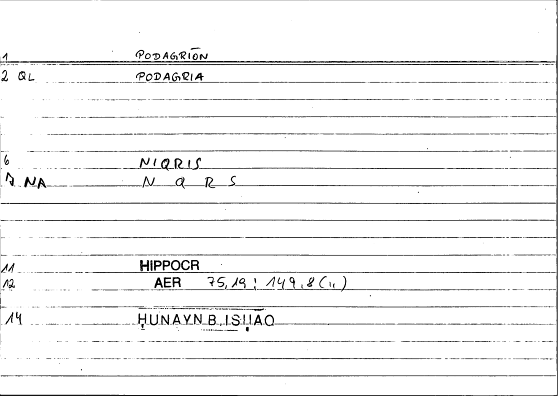 1 PODAGRIŌN
2 QL PODAGRIA
6 NIQRIS
7 NA N Q R S
11 HIPPOCR
12 AER 75,19 : 149,8 (11)
14 ḤUNAYN B. ISḤĀQ